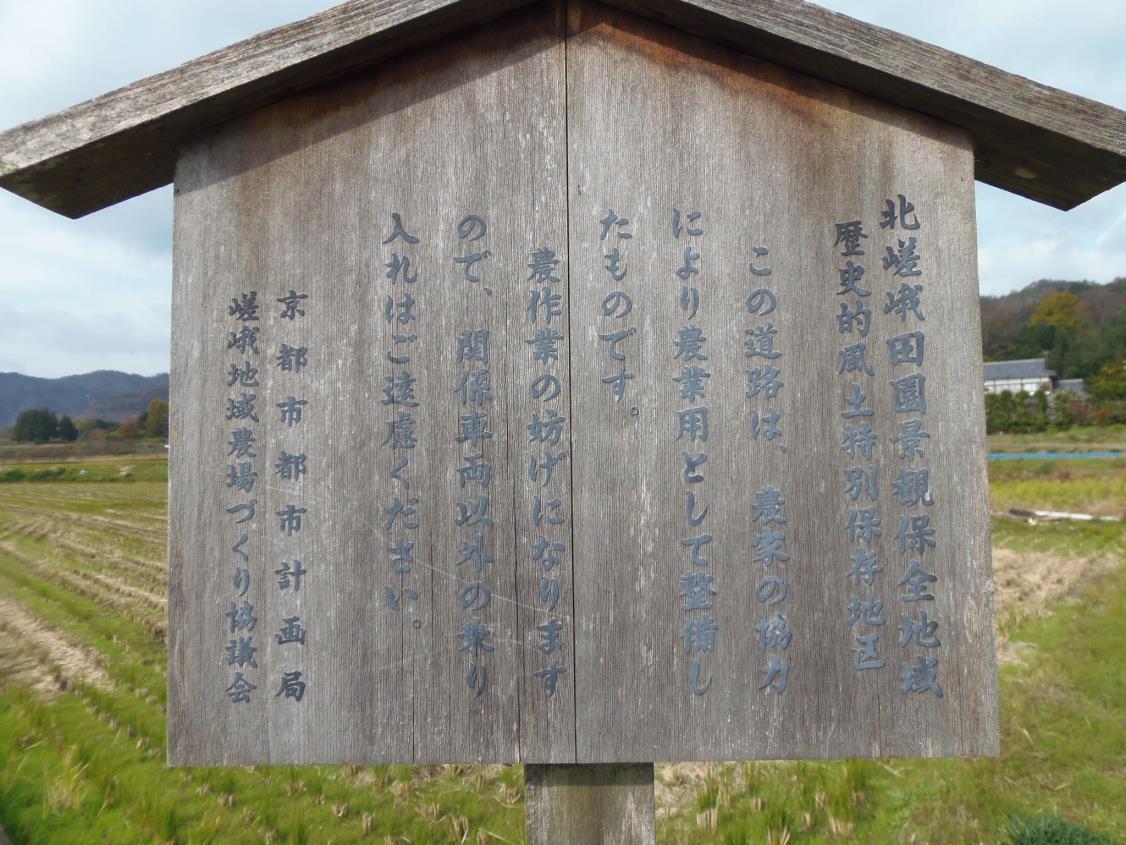 北嵯峨田園景観保全地域
歴史的風土特別保存地区
この道路は、農家の協力
により農業用として整備し
たものです。
農作業の妨げになります
ので、関係車両以外の乗り
入れはご遠慮ください。
京都市都市計画局
嵯峨地域農場づくり協議会